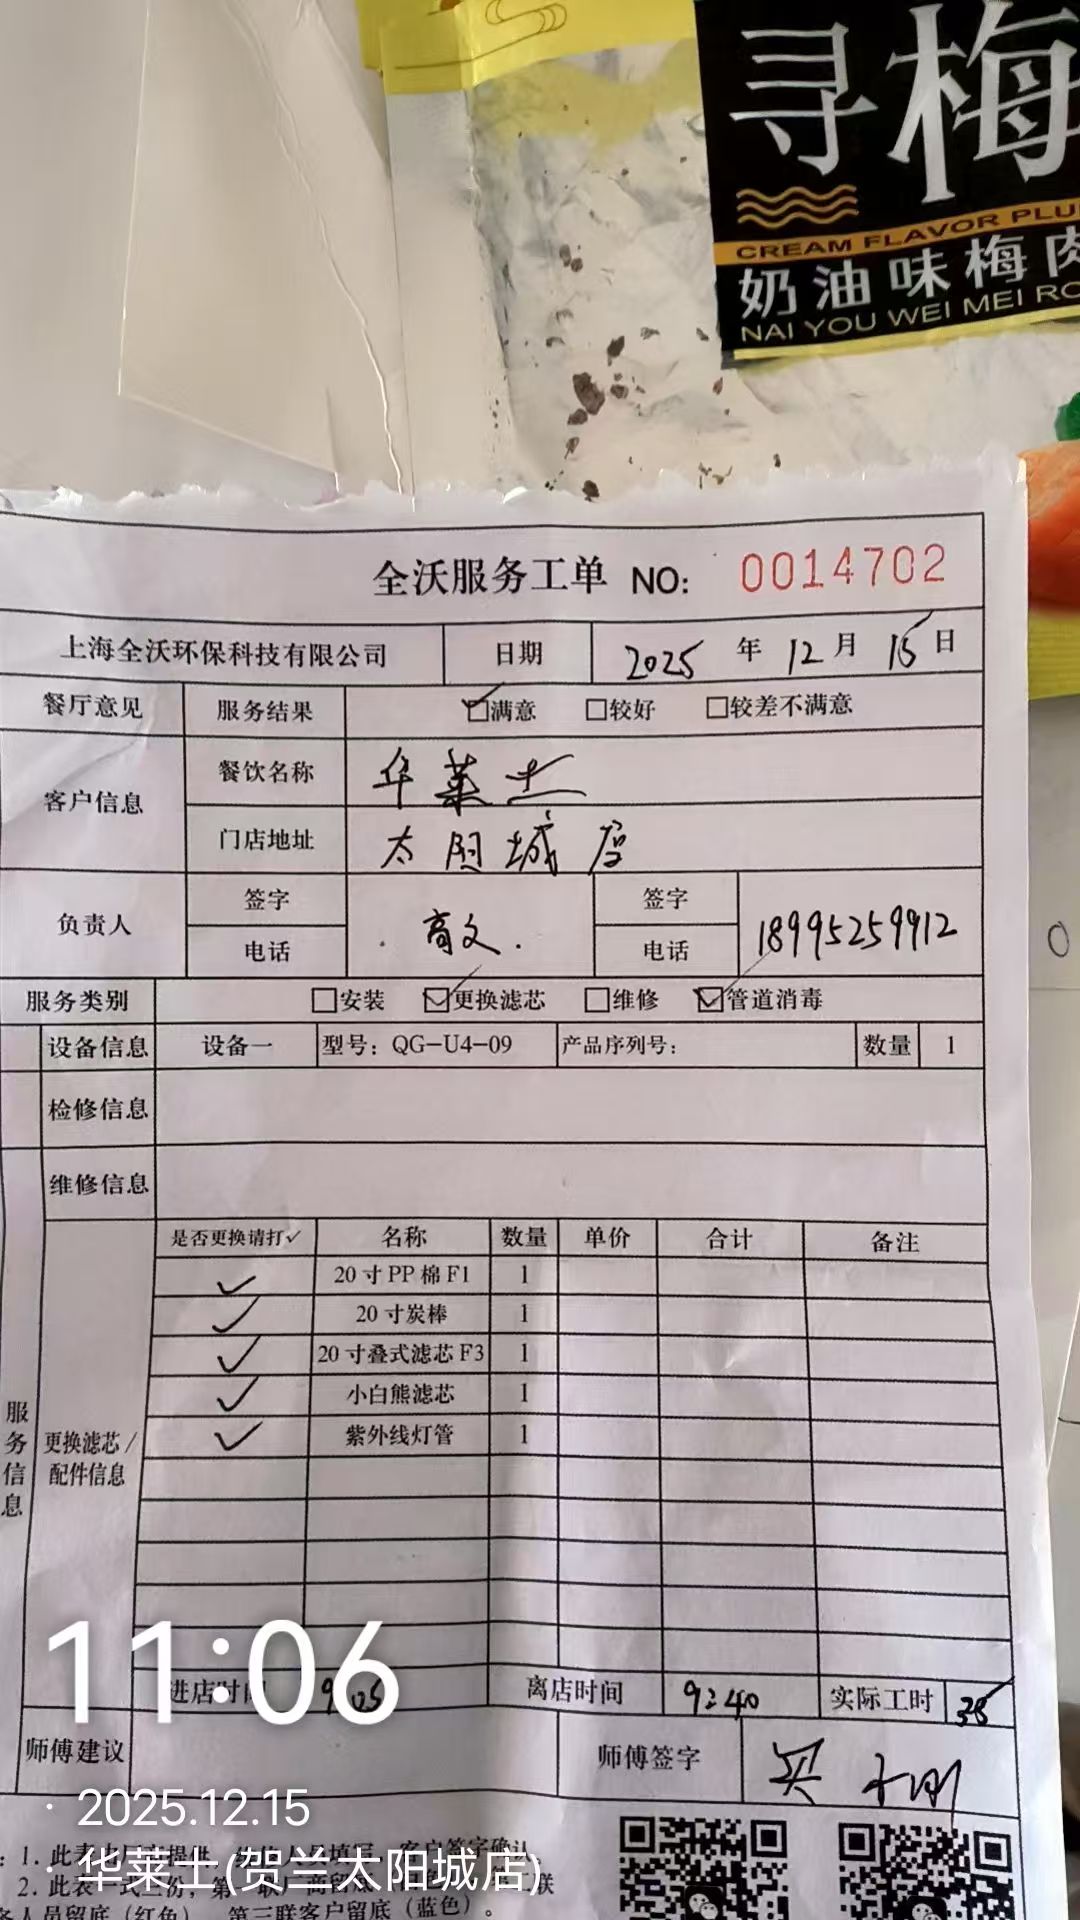 寻梅
CREAM FLAVOR PLU
奶油味梅肉
NAI YOU WEI MEI RO
全沃服务工单 NO: 0014702
上海全沃环保科技有限公司 日期 2025 年 12 月 15 日
餐厅意见 服务结果 ☑满意 □较好 □较差不满意
客户信息 餐饮名称 华莱士
门店地址 太阳城店
负责人 签字 电话 高文 签字 电话 18995259912
服务类别 □安装 ☑更换滤芯 □维修 ☑管道消毒
设备信息 设备一 型号：QG-U4-09 产品序列号： 数量 1
检修信息
维修信息
服务信息
更换滤芯/配件信息
是否更换请打✓ 名称 数量 单价 合计 备注
✓ 20寸PP棉F1 1
✓ 20寸炭棒 1
✓ 20寸叠式滤芯F3 1
✓ 小白熊滤芯 1
✓ 紫外线灯管 1
进店时间 9:05 离店时间 9:40 实际工时 35
师傅建议 师傅签字
11:06
· 2025.12.15
· 华莱士(贺兰太阳城店)
1. 此表由 提供， 填写，客户签字确认
2. 此表一式三份，第一联厂商留底 联
务人员留底（红色），第三联客户留底（蓝色）。